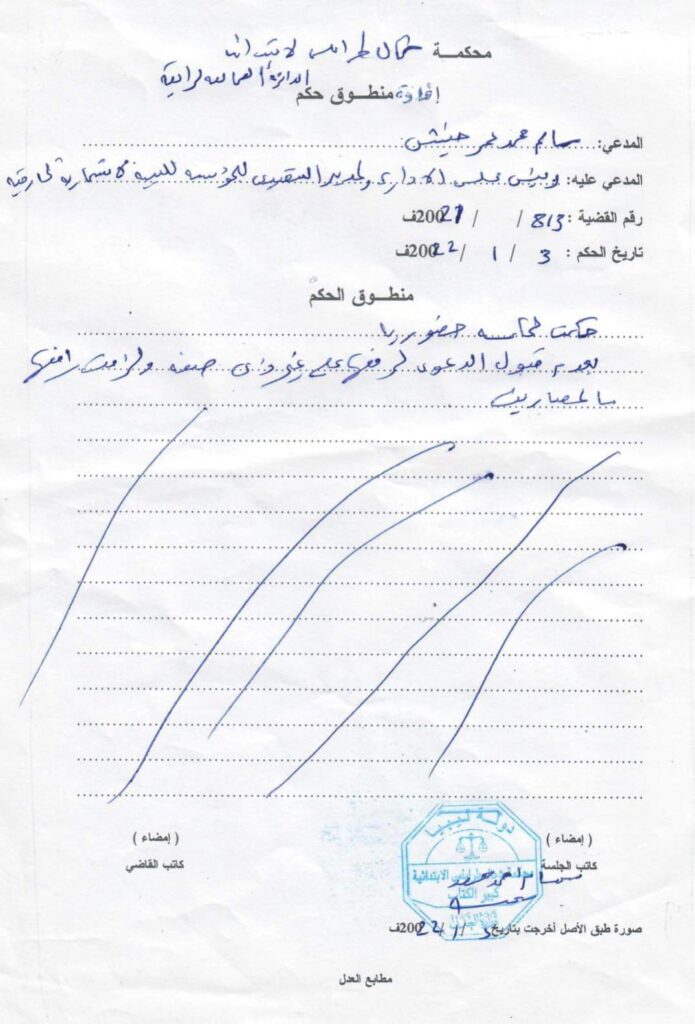 محكمـــة شمال طرابلس الابتدائية
الدائرة العمالية الرابعة
إفادة منطــوق حكم
المدعي: سالم محمد عمر حنيش
المدعي عليه: رئيس مجلس الادارة والمدير التنفيدي للمؤسسة الليبية للاستثمارات الخارجية
رقم القضية : 813 / / 20021ف
تاريخ الحكم : 3 / 1 / 20022ف
منطــوق الحكم
حكمت المحكمة حضوريا
بعدم قبول الدعوى لرفعها على غير ذي صفة والزامت رافعها
بالمصاريف
( إمضاء ) ( إمضاء )
كاتب الجلسة كاتب القاضي
دولة ليبيا
محكمة شمال طرابلس الابتدائية
كبير الكتاب
وزارة العدل
صورة طبق الأصل أخرجت بتاريخ 3 / 1 / 20022ف
مطابع العدل